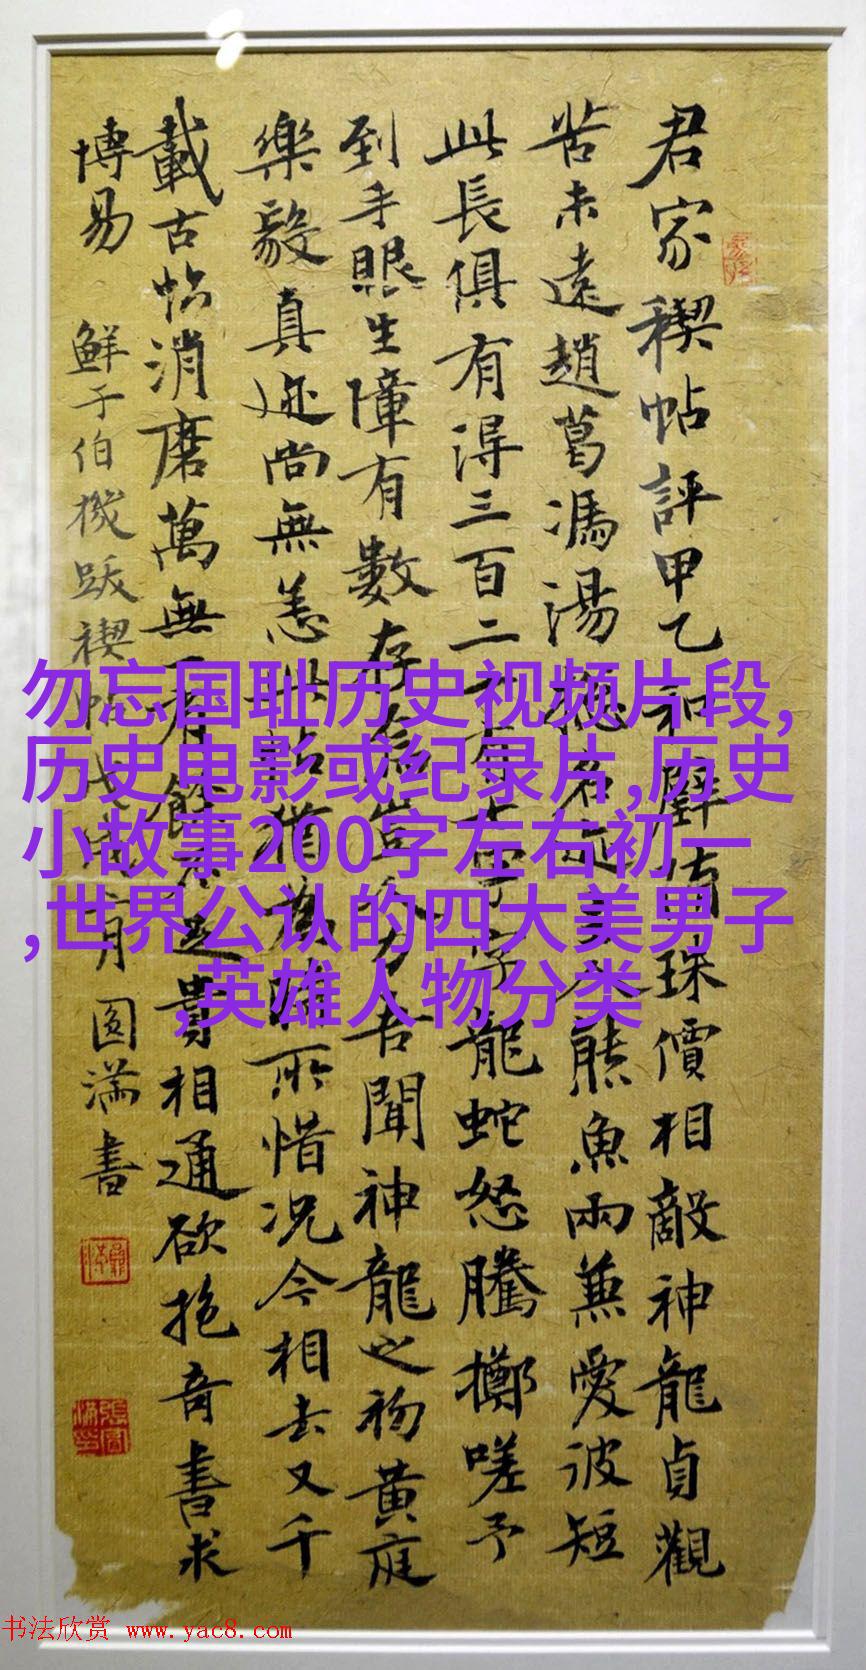 君家稧帖評甲乙和璧隋珠價相敵神龍貞觀
苦未遠趙葛馮湯揔名迹主人熊魚兩兼愛彼短
此長俱有得三百二十字龍蛇怒騰擲嗟予
到手眼生障有數存焉豈人力吾聞神龍之初黃庭
樂毅真迹尚無恙此帖猶為時所惜況今相去又千
載古帖消磨萬無一有餘不足貴相通欲抱奇書求
博易 鮮于伯機跋禊帖戊月 圓满書
勿忘国耻历史视频片段,
历史电影或纪录片,历史
小故事200字左右初一
,世界公认的四大美男子
,英雄人物分类
书法欣赏 www.yac8.com